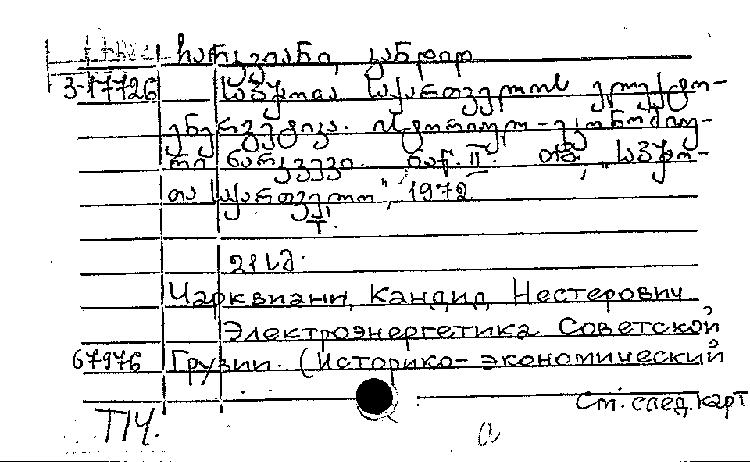 ჩარკვიანი, კანდიდ
3-17726 საბჭოთა საქართველოს ელექტრო-
ენერგეტიკა. ისტორიულ-ეკონომიუ-
რი ნარკვევი. ნაწ. II. თბ., "საბჭო-
თა საქართველო", 1972
т. 1
211 გვ.
Чарквиани, Кандид Нестерович
Электроэнергетика Советской
67976 Грузии. (Историко-экономический
См. след. карт
ТПЧ.
a